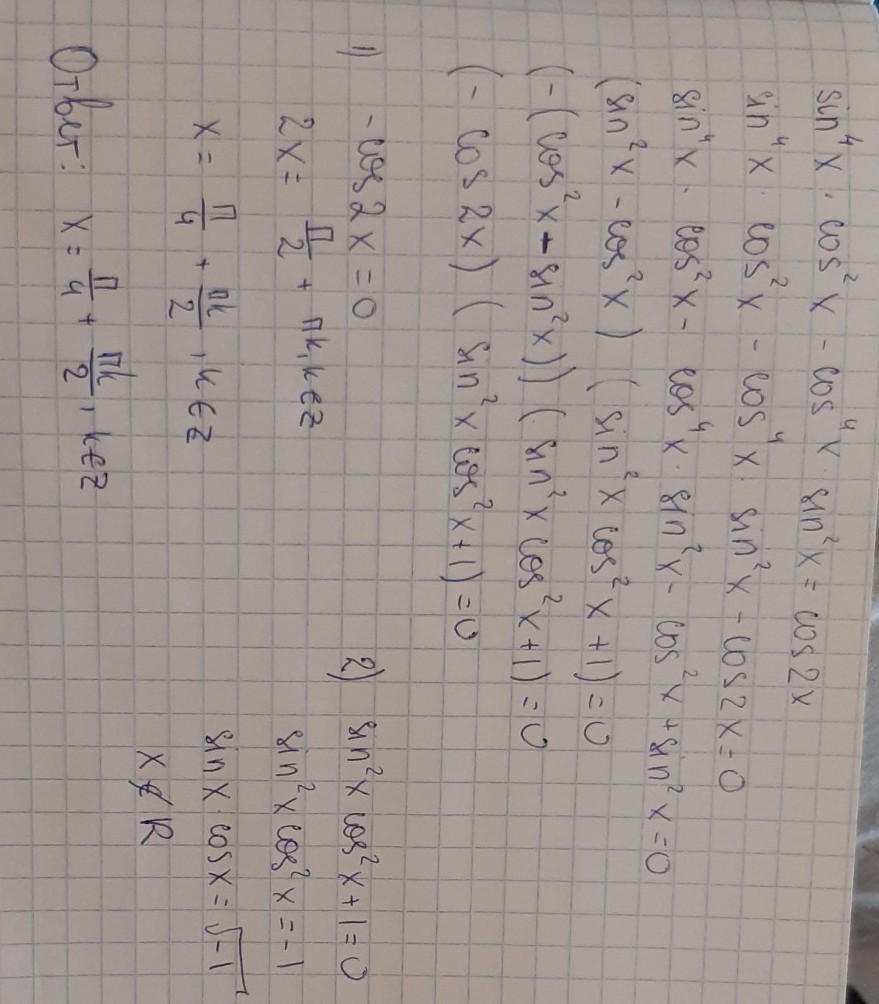 sin⁴x · cos²x - cos⁴x · sin²x = cos2x
sin⁴x · cos²x - cos⁴x · sin²x - cos2x = 0
sin⁴x · cos²x - cos⁴x · sin²x - cos²x + sin²x = 0
(sin²x - cos²x) (sin²x cos²x + 1) = 0
(-(cos²x - sin²x)) (sin²x cos²x + 1) = 0
(- cos 2x) (sin²x cos²x + 1) = 0
1) - cos 2x = 0
2x = π/2 + πk, k∈Z
x = π/4 + πk/2, k∈Z
2) sin²x cos²x + 1 = 0
sin²x cos²x = -1
sinx · cosx = √-1
x ∉ R
Ответ: x = π/4 + πk/2, k∈Z